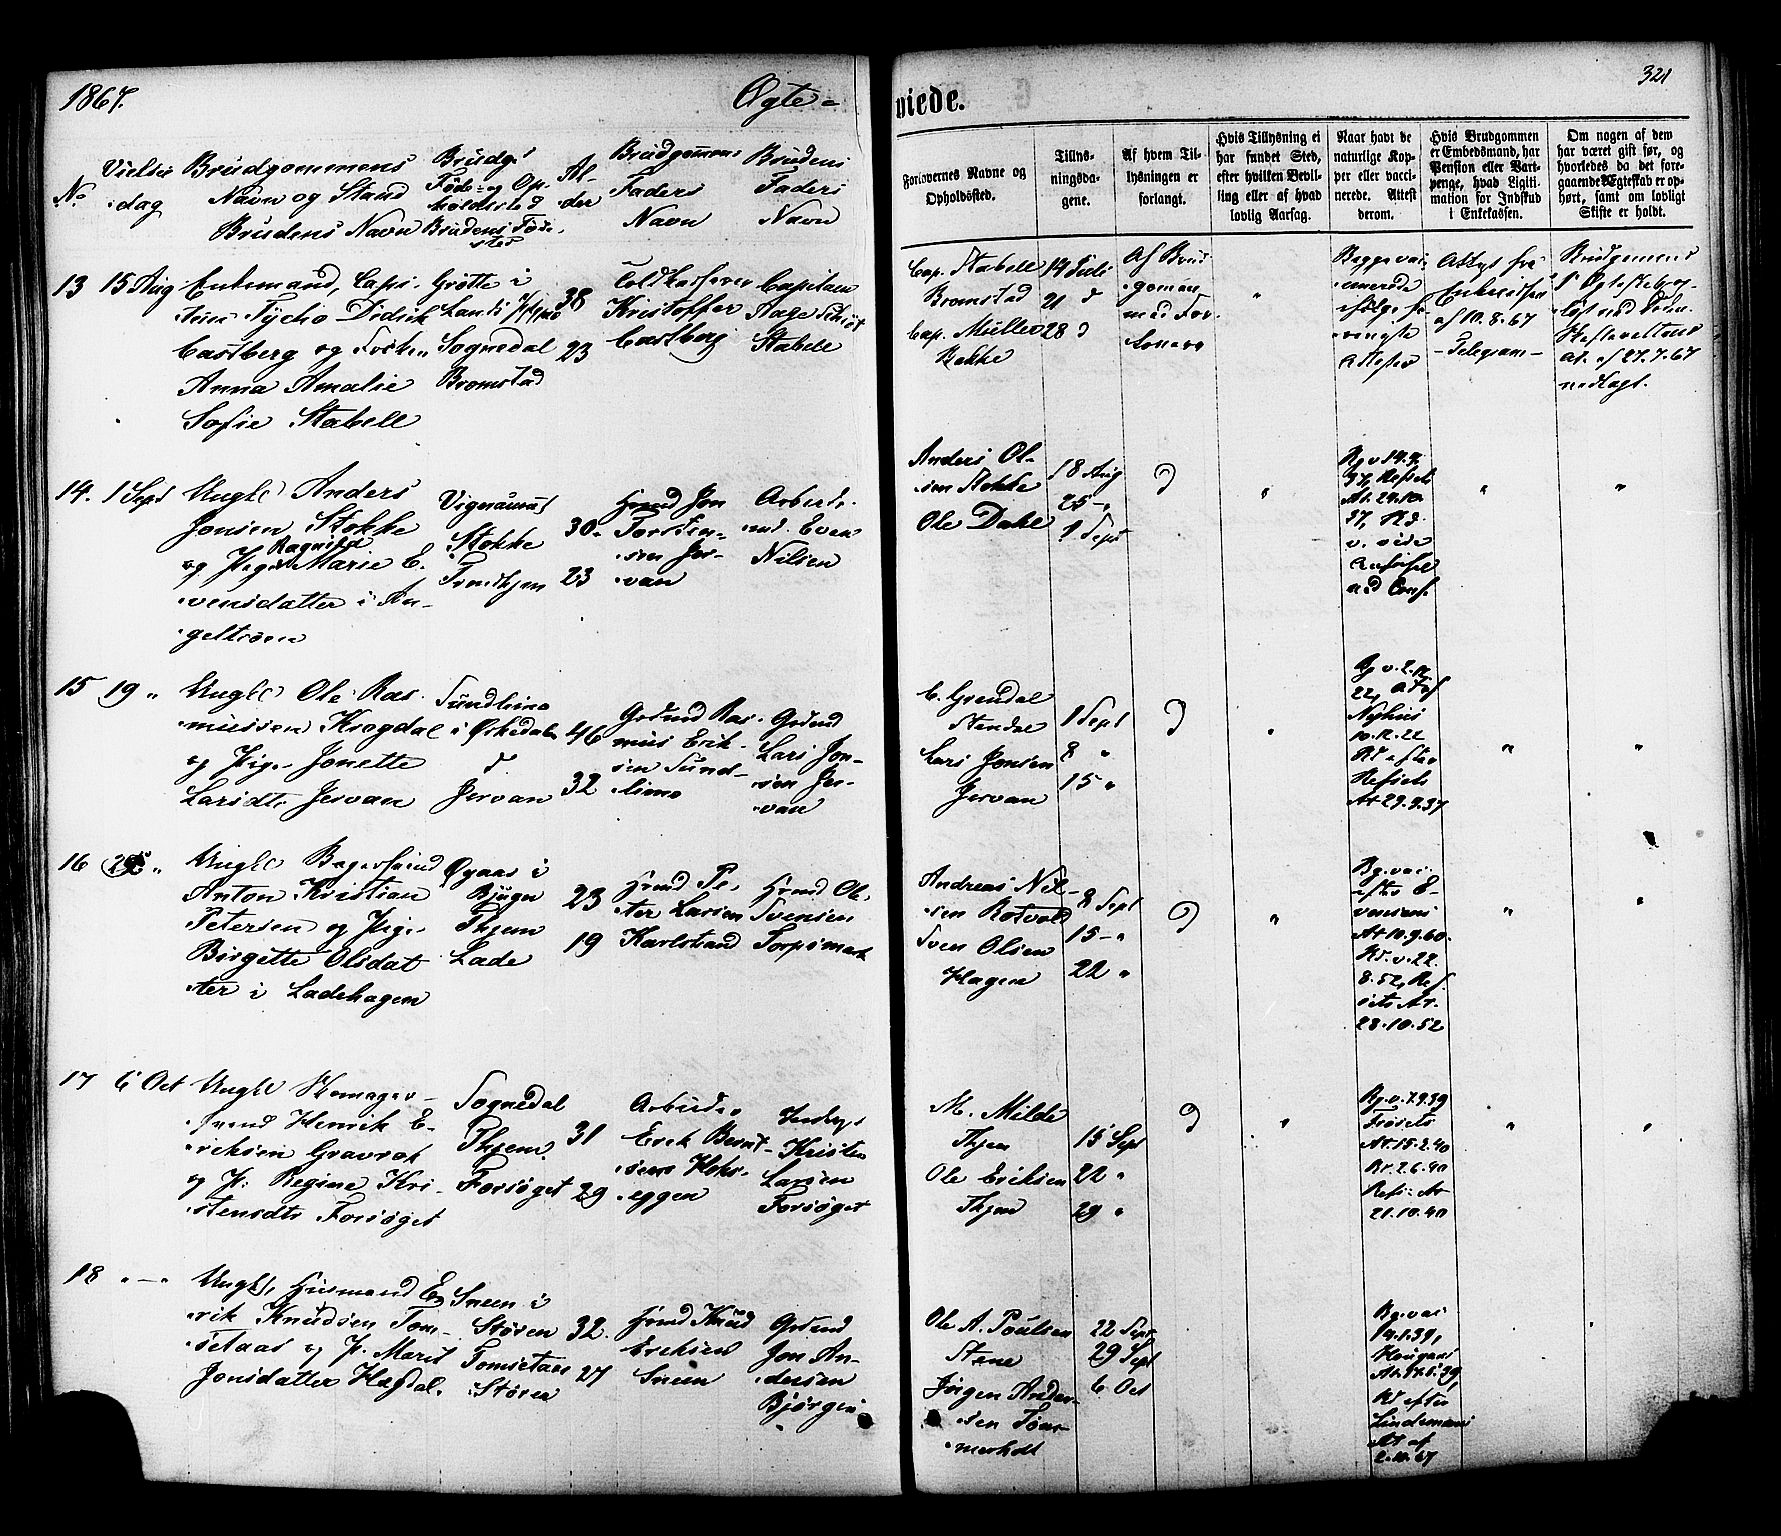 1867.
Ægte-
viede.
321
No
Vielses
dag
Brudgommens
Navn og Stand
Brudens Navn
Brudgs
Føde- og Op-
holdssted
Brudens Føde-
sted
Al-
der
Brudgommens
Faders
Navn
Brudens
Faders
Navn
Forlovernes Navne og
Opholdssted.
Tillys-
ningsda-
gene.
Af hvem Til-
lysningen er
forlangt.
Hvis Tillysning ei
har fundet Sted,
efter hvilken Bevil-
ling eller af hvad
lovlig Aarsag.
Naar havt de
naturlige Kop-
per eller vacci-
nerede. Attest
derom.
Hvis Brudgommen
er Embedsmand, har
Pension eller Vart-
penge, hvad Ligiti-
mation for Indskud
i Enkekassen.
Om nogen af dem
har været gift før, og
hvorledes da det fore-
gaaende Ægteskab er op-
hørt, samt om lovligt
Skifte er holdt.
13 15 Aug
Enkemand, Capi-
Tycho Didrik
Castberg og Frøken
Anna Amalie
Sofie Stabell
Grøtte i
Land
Sognedal
Bromstad
38
23
Toldkasserer
Kristoffer
Castberg
Capitan
Aage
Stabell
Cap. Stabell
Bromstad
Cap. Müller
Bakke
14 Juli
21 d
28 d
Af Brud-
gomen
med For-
lovere
"
Begge vac-
cinerede
ifølge
Attester
Attest fra
Enkekassen
af 10.8.67
- Telegram -
Brudgomens
af 27.7.67
nedlagt.
14. 1 Sept
Ungkl Anders
Jonsen Stokke
Ragnild
og Pige Marie E-
vensdatter i An-
geltrøen
Stokke
Trondhjem
30-
23
Hmd Jon
Torsten-
sen Jer-
van
Arbeids-
md. Even
Nilsen
Anders Ol-
sen Stokke
Ole Dahl
18 Aug
25 - "
1 Sept
d
"
37, Refsets
At. 24.10.
37, Kd.
v. vide
ad Conf.
"
"
15 19 "
Ungkl Ole Ras-
mussen Krogdal
og Pige Jonette
Larsdt. Jervan
Sundlimo
i Ørkedalen
d.
Jervan
46
32
Grdmd Ras-
mus Erik-
sen Sund-
limo
Grdmd
Lars Jon-
sen Jer-
van
C. Grendal
Stendal
Lars Jonsen
Jervan
1 Sept
8 "
15 "
d
"
Bg v. 2.12
22, Attest
Nyhus
10.12.22
Kd efter
Refsets
At 29.9.37
"
"
16 "
Ungkl Bagersvend
Anton Kristian
Petersen og Pige
Birgitte Olsdat-
ter i Ladehagen
Øgaas i
Bjugn
Thjem
Lade
23
19
Hmd Pe-
ter Larsen
Karlstrand
Hmd Ole
Svensen
Torpsmark
Andreas Nil-
sen Rotvold
Sven Olsen
Hagen
8 Sept
15 - "
22 "
d
"
Bg. vac.
efter E-
vensens
At 10.9.60.
Kd. v. 22.
8.52, Ref-
sets At.
28.10.52
"
"
17 6 Oct
Ungkl Skomager-
svend Henrik E-
riksen Gravrok
og P. Regine Kri-
stensdt. Forsøget
Sognedal
Thjem
Forsøget
31
29
Arbeider
Erik Bernt-
sen Hoks-
eggen
Inderst
Kristen
Larsen
Forsøget
M. Milde
Thjem
Ole Eriksen
Thjem
15 Sept
22 "
29 "
d
"
At. 15.2.40
Kd. 2.6.40
Refs: At
21.10.40
"
"
18 " - "
Ungkl, Husmand E-
rik Knudsen Tom-
setaas og P. Marit
Jonsdatter Hagdal.
Sneen i
Støren
Tomsetaas
i Støren
32.
27
Hmd Knud
Eriksen
Sneen
Grdmd
Jon An-
dersen
Bjørgen
Ole A. Poulsen
Stene
Jørgen Ander-
sen Tøm-
merholt
22 Sept
29 Sept
6 Oct
Bg. vac
14.1.39,
Kd efter
Lindemans
At af
2.10.67